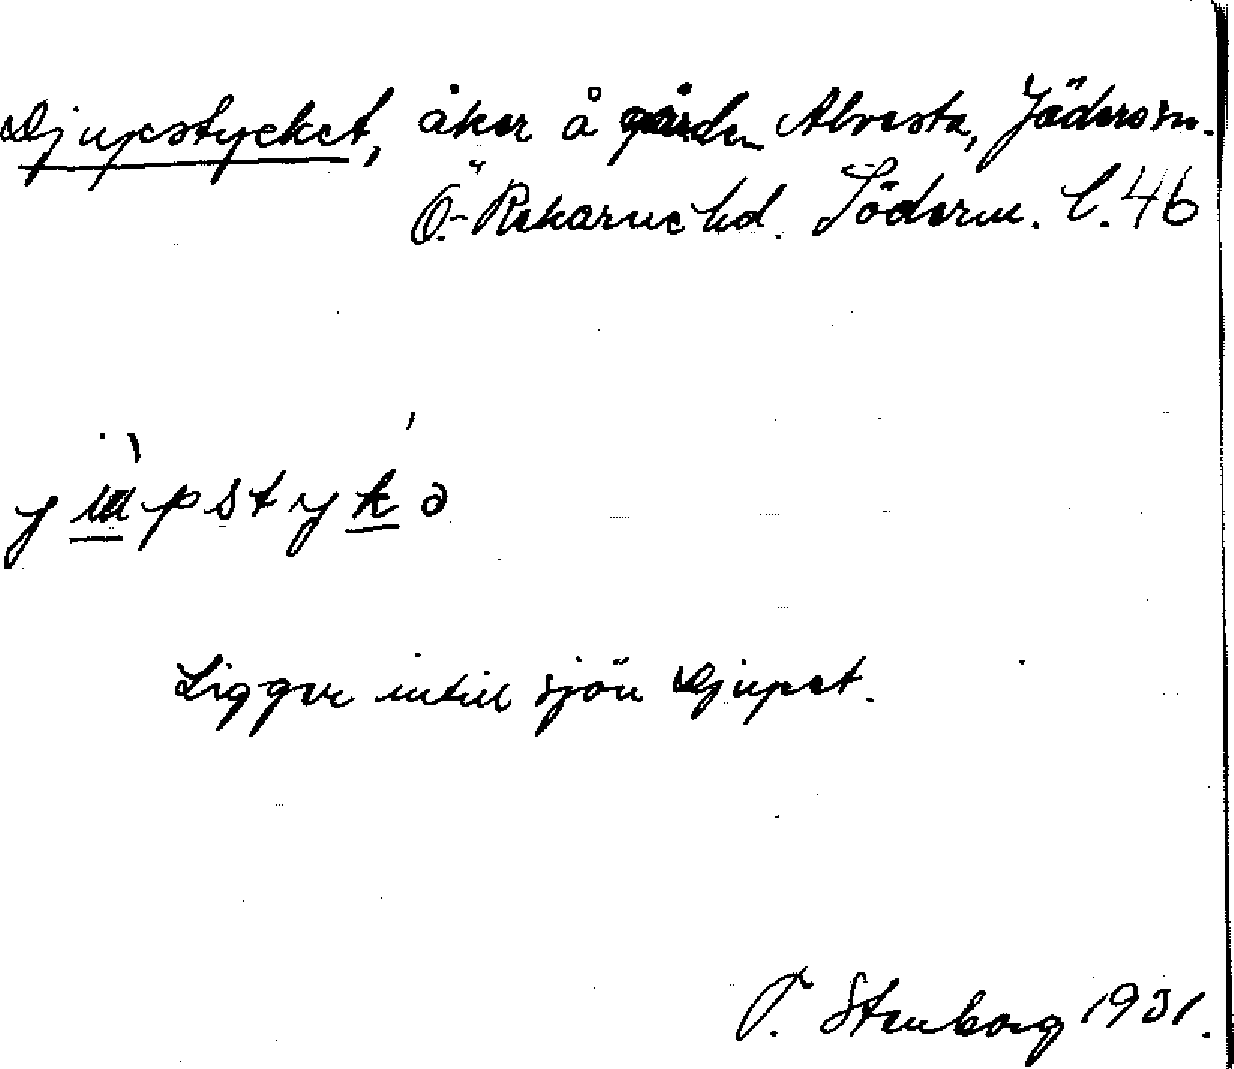 Djupstycket, åker å gården Alvesta, Jäders sn.
Ö.-Rekarne hd. Söderm. l. 46
Ligger intill sjön Djupet.
Stenborg 1931.